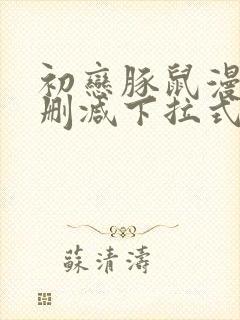 初戀豚鼠漫
刪減下拉式
蘇清濤